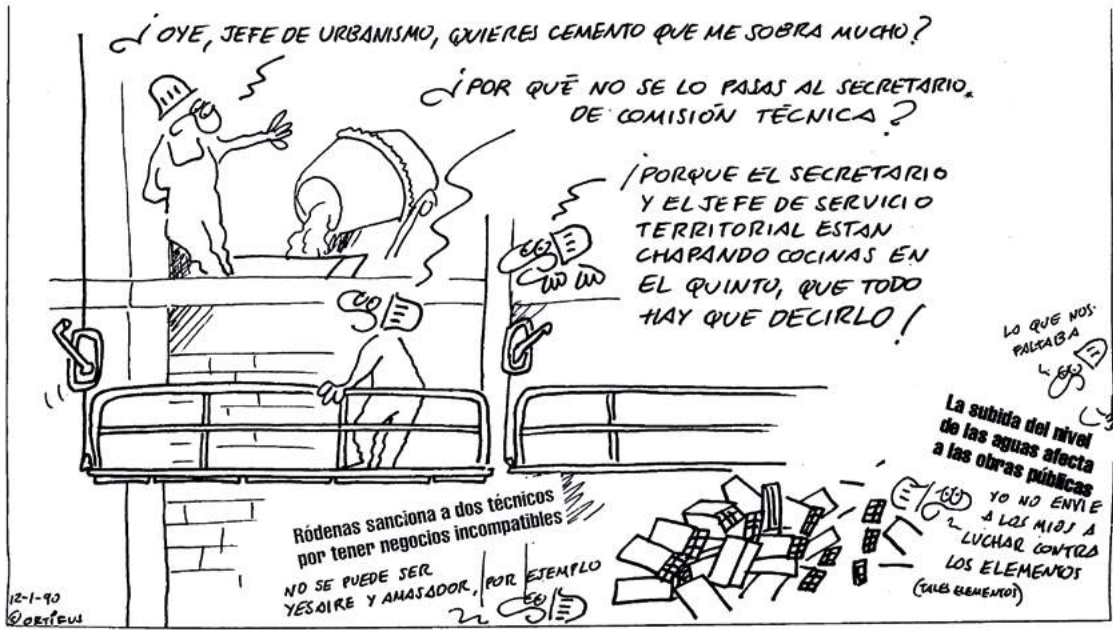 ¡OYE, JEFE DE URBANISMO, QUIERES CEMENTO QUE ME SOBRA MUCHO?
¿POR QUÉ NO SE LO PASAS AL SECRETARIO
DE COMISIÓN TÉCNICA?
¡PORQUE EL SECRETARIO
Y EL JEFE DE SERVICIO
TERRITORIAL ESTAN
CHAPANDO COCINAS EN
EL QUINTO, QUE TODO
HAY QUE DECIRLO!
LO QUE NOS
FALTABA
La subida del nivel
de las aguas afecta
a las obras públicas
YO NO ENVIE
A LOS MIOS A
LUCHAR CONTRA
LOS ELEMENTOS
(TALES ELEMENTOS)
Ródenas sanciona a dos técnicos
por tener negocios incompatibles
NO SE PUEDE SER
YESAIRE Y AMASADOR, POR EJEMPLO
12-1-90
© ORTIFUS